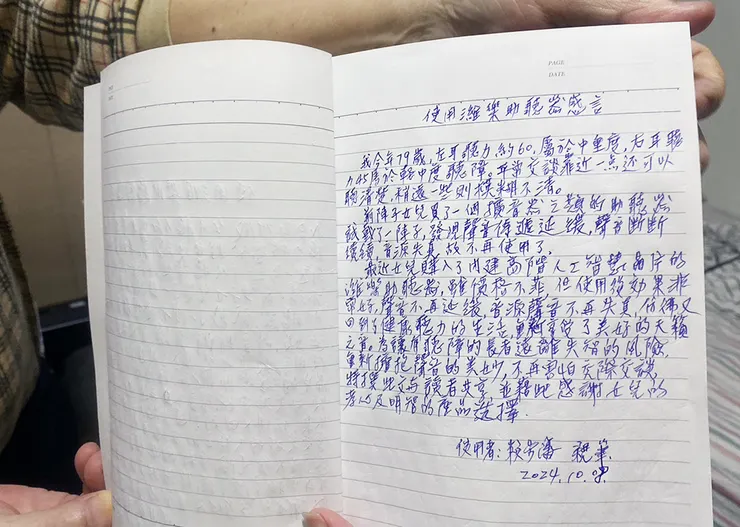 PAGE
DATE
使用瀅樂助聽器感言
我今年79歲,左耳聽力約60,屬於中重度,右耳聽
力45屬於輕中度聽障。平常交談靠近一点还可以
聽清楚,稍遠一些則模糊不清。
前陣子女兒買了一個擴音器之類的助聽器
試戴了一陣子,發現聲音傳遞延緩,聲音斷斷
續續,音源失真故不再使用了。
最近女兒購入了內建高階人工智慧晶片的
瀅樂助聽器,雖價格不菲但使用後効果非
常好,聲音不再延緩,音源聲音不再失真,仿佛又
回到了健康聽力的生活,重新享受了美好的天籟
之音。為讓有聽障的長者遠離失智的風險,
重新擁抱聲音的美妙,不再害怕交際交談,
特撰此文与讀者共享,並藉此感謝女兒的
孝心及明智的產品選擇.
使用者:賴 潘 親筆
2024.10.